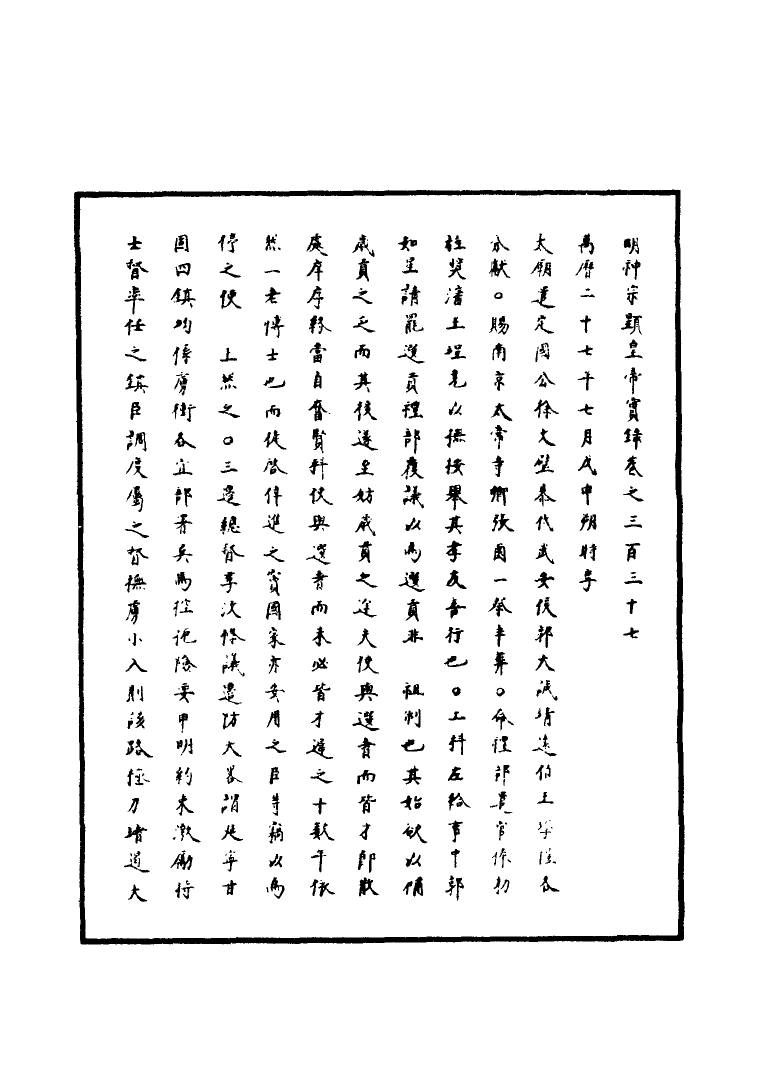 明神宗顯皇帝實錄卷之三百三十七
萬曆二十七年七月戊申朔時享
太廟遣定國公徐文璧恭代武安侯郭大誠靖遠伯王學禮各
分獻○賜南京太常寺卿張鹵一祭半葬○命禮部遣官作勑
往獎瀋王珵堯以撫按舉其孝友善行也○工科左給事中郭
如星請罷選貢禮部覆議以為選貢非　祖制也其始欲以備
歲貢之乏而其後遂至妨歲貢之途夫使與選者而皆才即散
處庠序終當自奮賢科使與選者而未必皆才遲之十數年依
然一老博士也而徒啓倖進之竇國家亦安用之臣等竊以為
停之便　上然之○三邊總督李汶條議邊防大畧謂延寧甘
固四鎮均偹虜衝各宜部署兵馬控扼隘要申明約束激勵將
士督率任之鎮臣調度屬之督撫虜小入則該路極力堵逼大